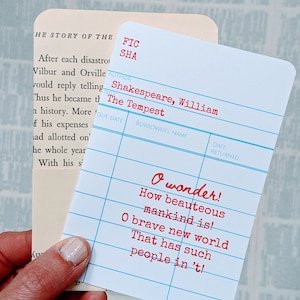 HE STORY OF THE
After each disastro
Wilbur and Orville
would reply telling
Thus he became th
n history. More
of his expenses
had allotted on
the whole cou
With his si
FIC
SHA
Shakespeare, William
The Tempest
DUE DATE
BORROWER'S NAME
DATE RETURNED
O wonder!
How beauteous
mankind is!
O brave new world
That has such
people in 't!